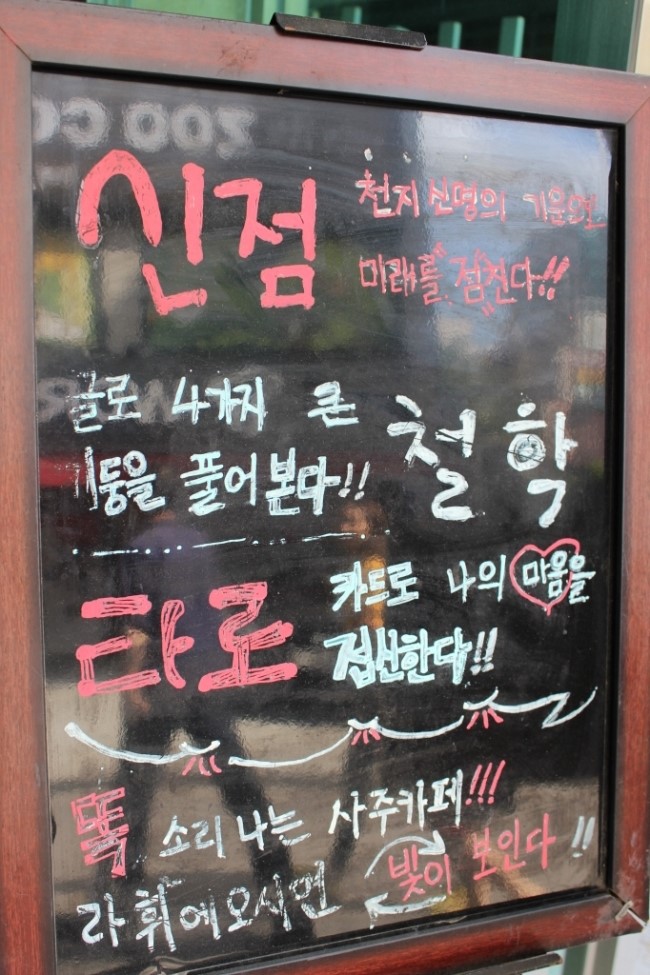 신점
천지신명의 기운으로
미래를 "점친다"!!
글로 4가지 큰
기둥을 풀어본다!!
철학
타로
카드로 나의 마음을
접신한다!!
똑 소리 나는 사주카페!!!
라휘에오시면 빛이 보인다!!